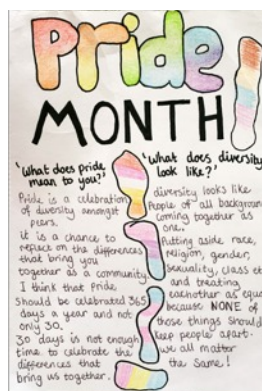 Pride
MONTH!
'What does pride
mean to you?'
Pride is a celebration
of diversity amongst
peers.
it is a chance to
reflect on the differences
that bring you
together as a community
I think that Pride
should be celebrated 365
days a year and not
only 30.
30 days is not enough
time to celebrate the
differences that
bring us together.
'What does diversity
look like?'
diversity looks like
People of all background
coming together as
one.
Putting aside race,
religion, gender,
sexuality, class et
and treating
eachother as equa
because NONE of
those things should
keep people apart.
we all matter
the same!